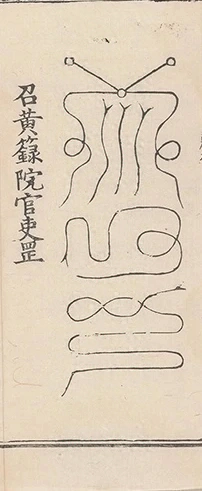 召黄籙院官吏罡